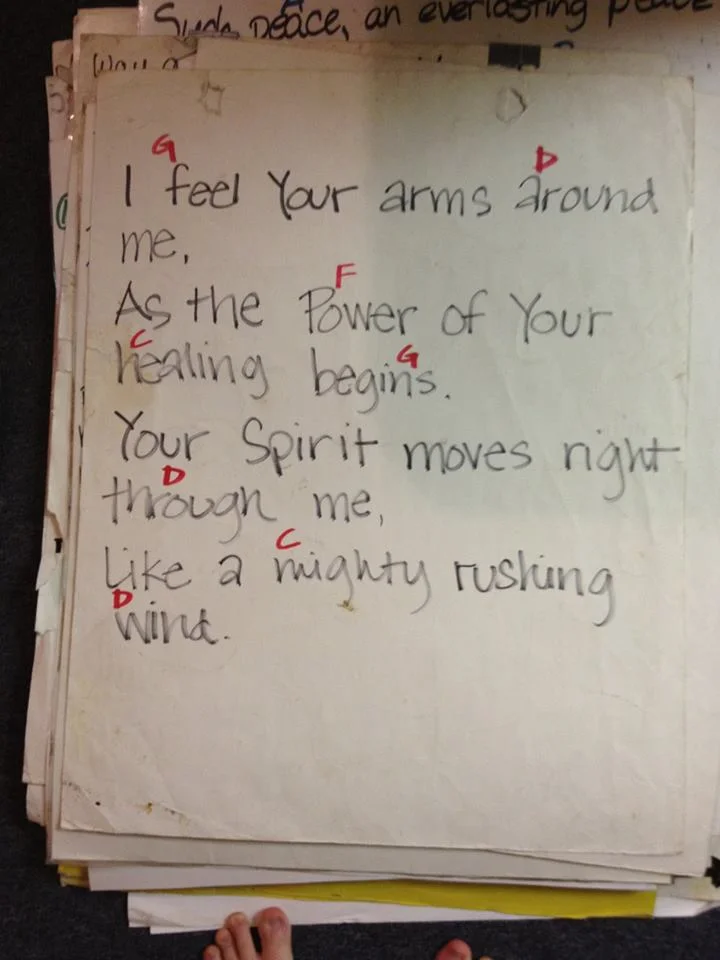 Such peace, an everlasting peace
Way
G D
I feel Your arms around
me,
F
As the Power of Your
C G
healing begins.
Your Spirit moves right
D
through me,
C
Like a mighty rushing
D
wind.